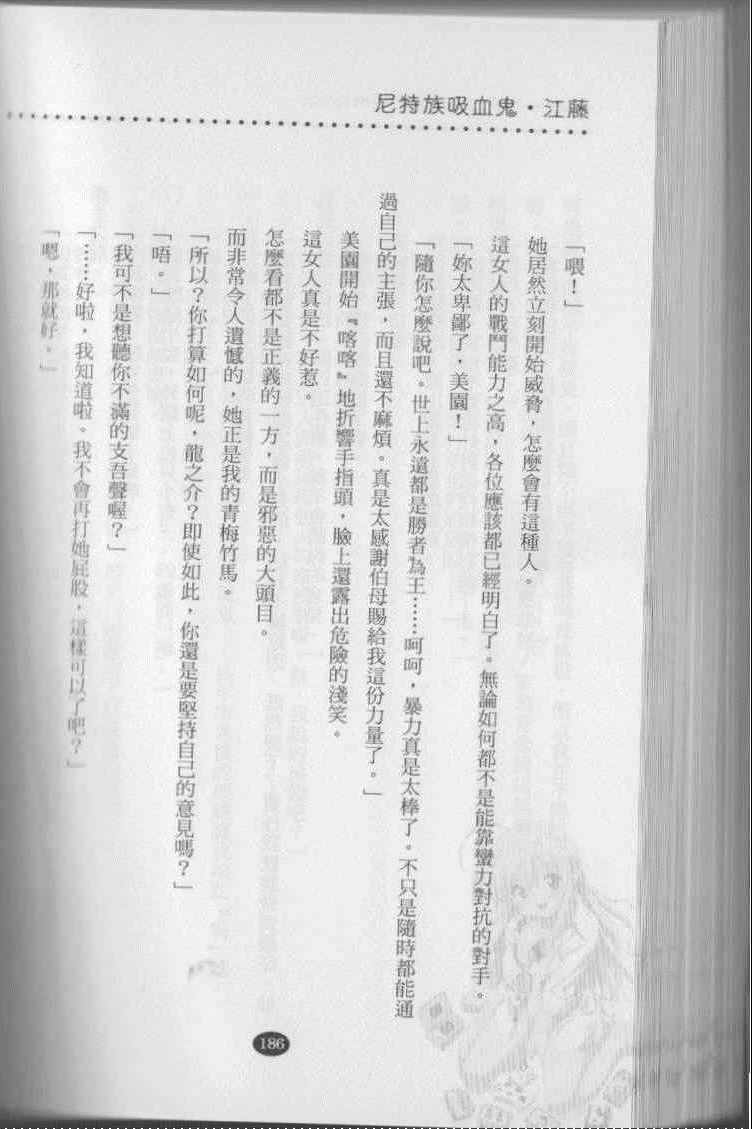 尼特族吸血鬼・江藤
「喂！」
她居然立刻開始威脅，怎麼會有這種人。
這女人的戰鬥能力之高，各位應該都已經明白了。無論如何都不是能靠蠻力對抗的對手。
「妳太卑鄙了，美園！」
「隨你怎麼說吧。世上永遠都是勝者為王……呵呵，暴力真是太棒了。不只是隨時都能通
過自己的主張，而且還不麻煩。真是太感謝伯母賜給我這份力量了。」
美園開始『喀喀』地折響手指頭，臉上還露出危險的淺笑。
這女人真是不好惹。
怎麼看都不是正義的一方，而是邪惡的大頭目。
而非常令人遺憾的，她正是我的青梅竹馬。
「所以？你打算如何呢，龍之介？即使如此，你還是要堅持自己的意見嗎？」
「唔。」
「我可不是想聽你不滿的支吾聲喔？」
「……好啦，我知道啦。我不會再打她屁股，這樣可以了吧？」
「嗯，那就好。」
186